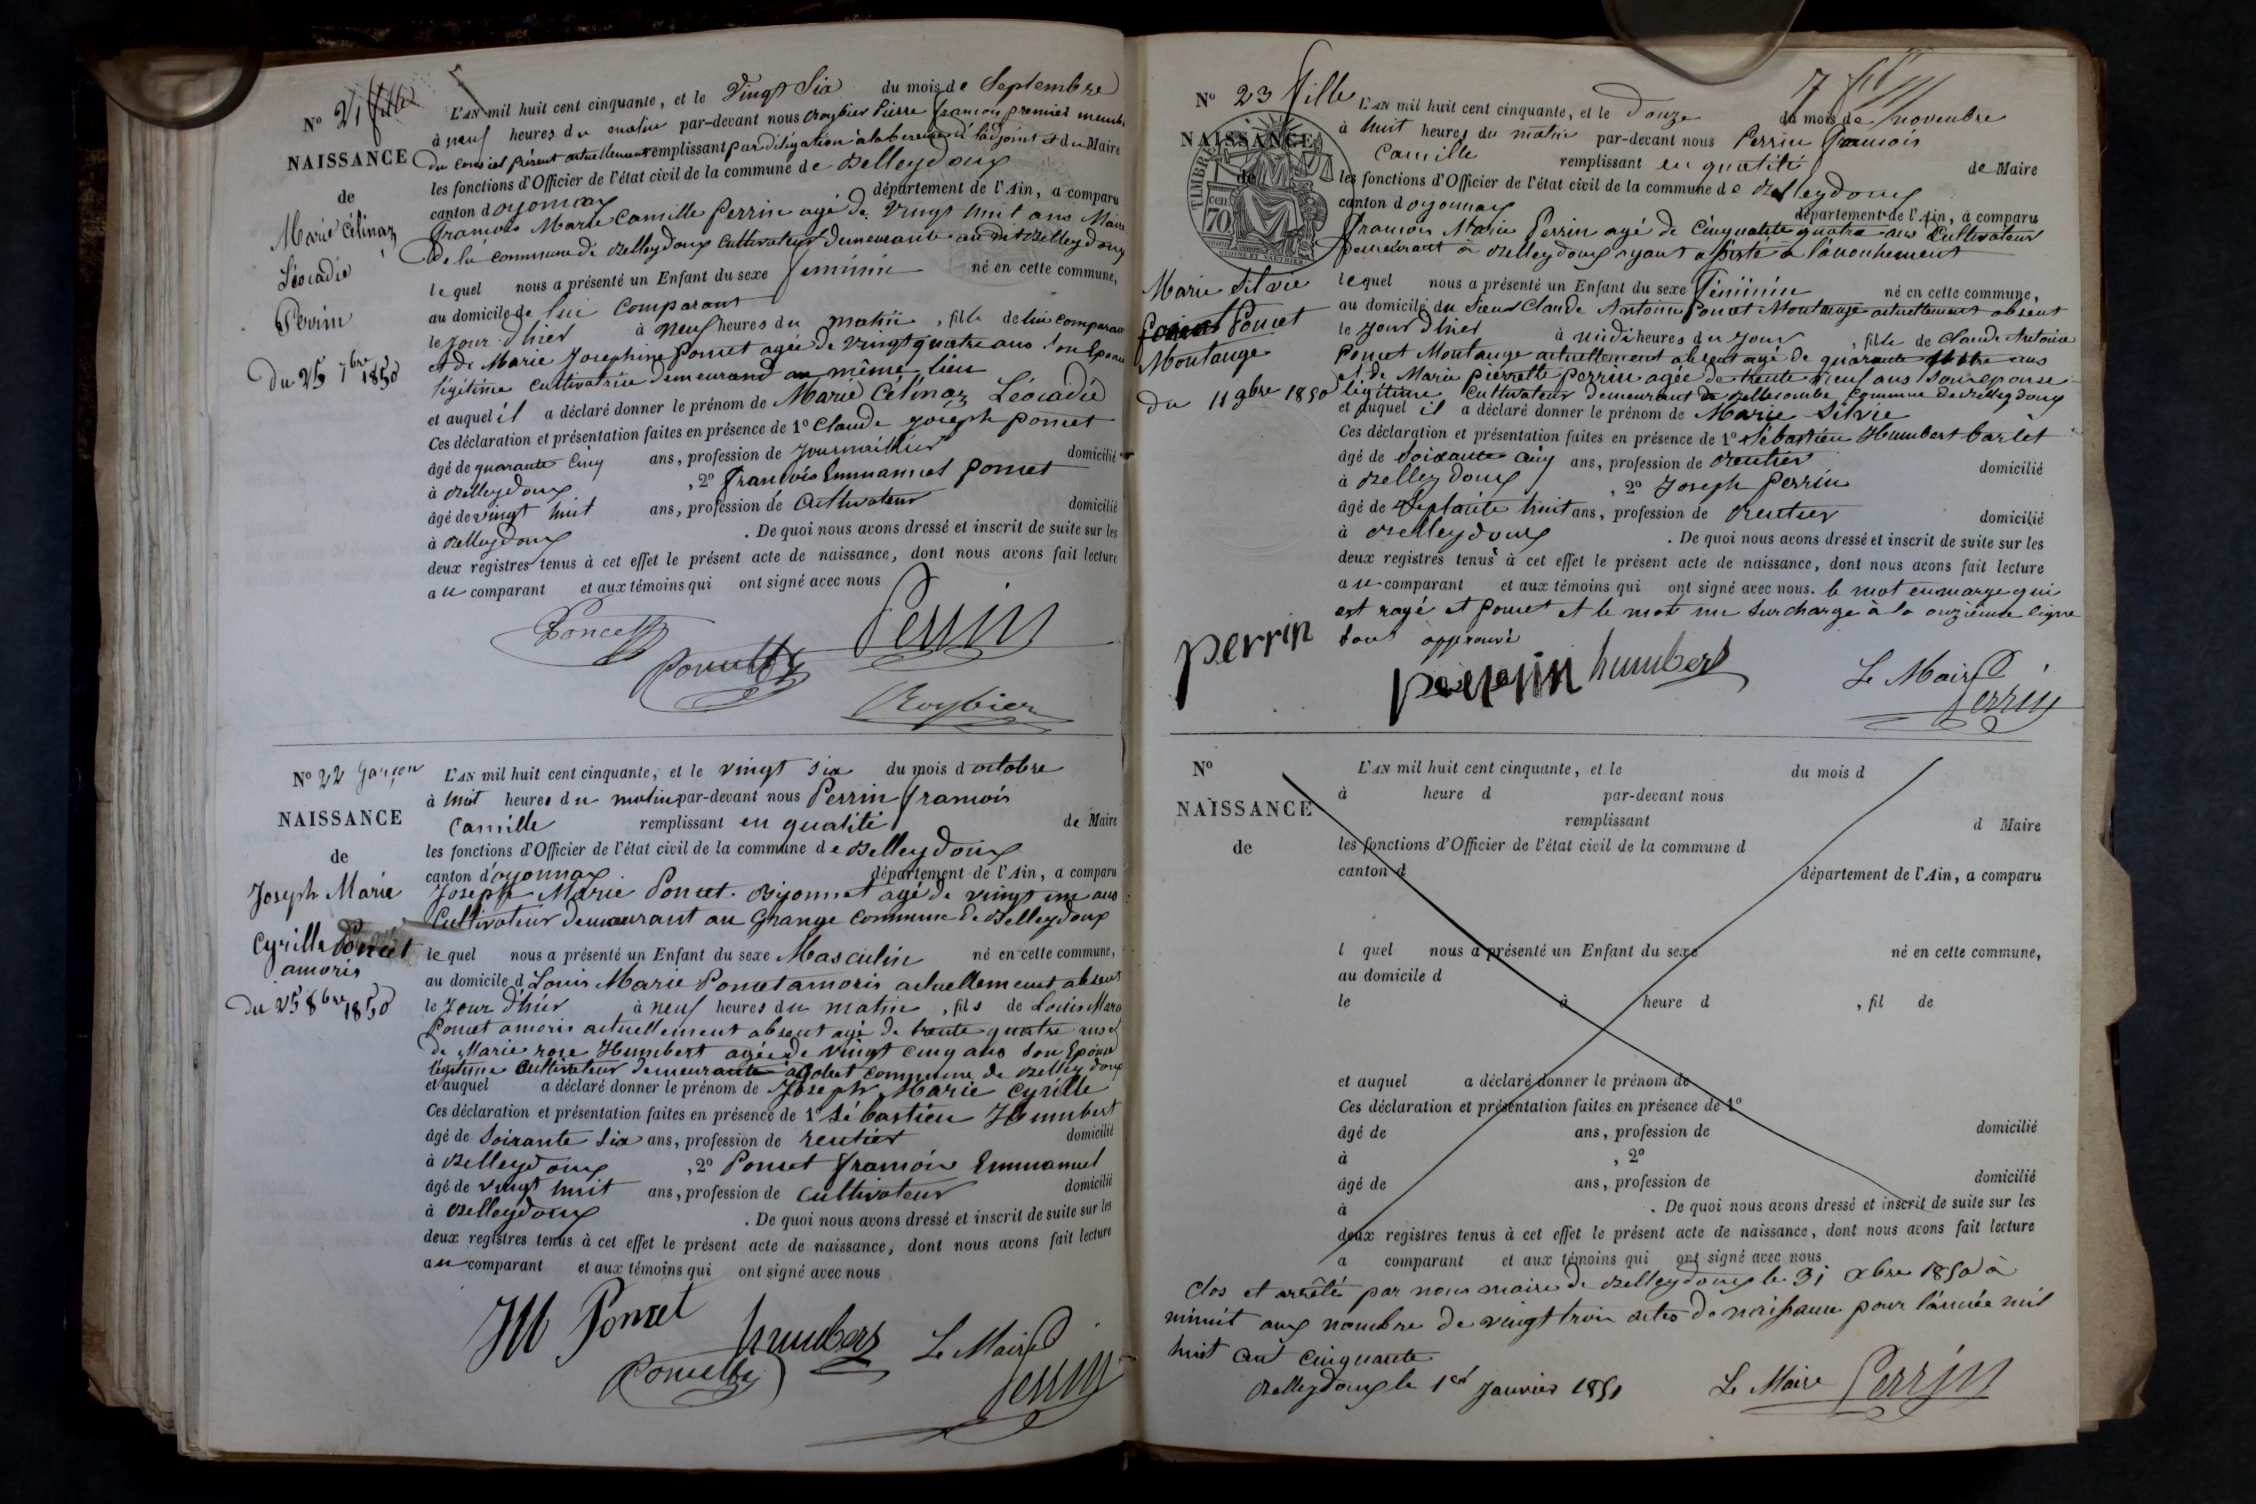 N° 21 fille
NAISSANCE
de
Marie Célinaz
Léocadie
Perrin
Du 25 7bre 1850
L'AN mil huit cent cinquante, et le Vingt Six du mois de Septembre
à neuf heures du matin par-devant nous Roybier Pierre françois premier membre
du Conseil présent actuellement remplissant par délégation à l'absence de l'adjoint et du Maire
les fonctions d'Officier de l'état civil de la commune de Belleydoux
canton d'oyonnax département de l'Ain, a comparu
François Marie Camille Perrin agé de vingt huit ans Maire
de la commune de Belleydoux Cultivateur demeurant au dit Belleydoux
lequel nous a présenté un Enfant du sexe feminin né en cette commune,
au domicile de lui Comparant
le jour d'hier à neuf heures du matin, fille de lui comparant
et de Marie Josephine Poncet agée de vingt quatre ans son Epouse
légitime cultivatrice demeurant au même lieu
et auquel il a déclaré donner le prénom de Marie Célinaz Léocadie
Ces déclaration et présentation faites en présence de 1° Claude joseph poncet
âgé de quarante Cinq ans, profession de Journaillier domicilié
à Belleydoux, 2° François Emmanuel poncet
âgé de vingt huit ans, profession de Cultivateur domicilié
à Belleydoux. De quoi nous avons dressé et inscrit de suite sur les
deux registres tenus à cet effet le présent acte de naissance, dont nous avons fait lecture
au comparant et aux témoins qui ont signé avec nous
Poncet Perrin
Poncet
Roybier
N° 22 Garçon
NAISSANCE
de
Joseph Marie
Cyrille Poncet
amoris
Du 25 8bre 1850
L'AN mil huit cent cinquante, et le vingt six du mois d'octobre
à huit heures du matin par-devant nous Perrin François
Camille remplissant en qualité de Maire
les fonctions d'Officier de l'état civil de la commune de Belleydoux
canton d'oyonnax département de l'Ain, a comparu
Joseph Marie Poncet Bijonnet agé de vingt un ans
Cultivateur demeurant au Grange Commune de Belleydoux
lequel nous a présenté un Enfant du sexe Masculin né en cette commune,
au domicile d Louis Marie Poncet amoris actuellement absent
le Jour d'hier à neuf heures du matin, fils de Louis Marie
Poncet amoris actuellement absent agé de trente quatre ans et
de Marie rose Humbert agée de vingt cinq ans son Epouse
légitime Cultivateur demeurant commune de Belleydoux
et auquel a déclaré donner le prénom de Joseph Marie Cyrille
Ces déclaration et présentation faites en présence de 1° Sébastien Humbert
âgé de Soixante Six ans, profession de rentier domicilié
à Belleydoux, 2° Poncet François Emmanuel
âgé de vingt huit ans, profession de cultivateur domicilié
à Belleydoux. De quoi nous avons dressé et inscrit de suite sur les
deux registres tenus à cet effet le présent acte de naissance, dont nous avons fait lecture
au comparant et aux témoins qui ont signé avec nous
JM Poncet
humbert Le Maire
Poncet Perrin
N° 23 fille
NAISSANCE
de
TIMBRE
cen. 70
Marie Silvie
Poncet
Montange
Du 11 9bre 1850
L'AN mil huit cent cinquante, et le Douze du mois de novembre
à huit heures du matin par-devant nous Perrin François
Camille remplissant en qualité de Maire
les fonctions d'Officier de l'état civil de la commune de Belleydoux
canton d oyonnax département de l'Ain, a comparu
François Marie Perrin agé de Cinquante quatre ans Cultivateur
demeurant à Belleydoux ayant assisté à l'accouchement
lequel nous a présenté un Enfant du sexe Féminin né en cette commune,
au domicile du Sieur Claude Antoine Poncet Montange actuellement absent
le jour d'hier à midi heures du jour, fille de Claude Antoine
Poncet Montange actuellement absent agé de quarante ans
et de Marie pierrette perrin agée de trente neuf ans son epouse
légitime Cultivateur demeurant commune de Belleydoux
et auquel il a déclaré donner le prénom de Marie Silvie
Ces déclaration et présentation faites en présence de 1° Sébastien Humbert barlet
âgé de Soixante cinq ans, profession de Rentier domicilié
à Belleydoux, 2° Joseph Perrin
âgé de Septante huit ans, profession de Rentier domicilié
à Belleydoux. De quoi nous avons dressé et inscrit de suite sur les
deux registres tenus à cet effet le présent acte de naissance, dont nous avons fait lecture
au comparant et aux témoins qui ont signé avec nous. le mot en marge qui
est rayé et poncet et le mot un surchargé à la onzième ligne
sont approuvé
perrin
perrin humbert Le Maire
Perrin
N°
NAISSANCE
de
L'AN mil huit cent cinquante, et le du mois d
à heure d par-devant nous
remplissant d Maire
les fonctions d'Officier de l'état civil de la commune d
canton d département de l'Ain, a comparu
l quel nous a présenté un Enfant du sexe né en cette commune,
au domicile d
le à heure d, fil de
et auquel a déclaré donner le prénom de
Ces déclaration et présentation faites en présence de 1°
âgé de ans, profession de domicilié
à, 2°
âgé de ans, profession de domicilié
à. De quoi nous avons dressé et inscrit de suite sur les
deux registres tenus à cet effet le présent acte de naissance, dont nous avons fait lecture
a comparant et aux témoins qui ont signé avec nous
Clos et arrêté par nous maire de Belleydoux le 31 Xbre 1850 à
minuit aux nombre de vingt trois actes de naissance pour l'année mil
huit cent cinquante
Belleydoux le 1er Janvier 1851 Le Maire Perrin